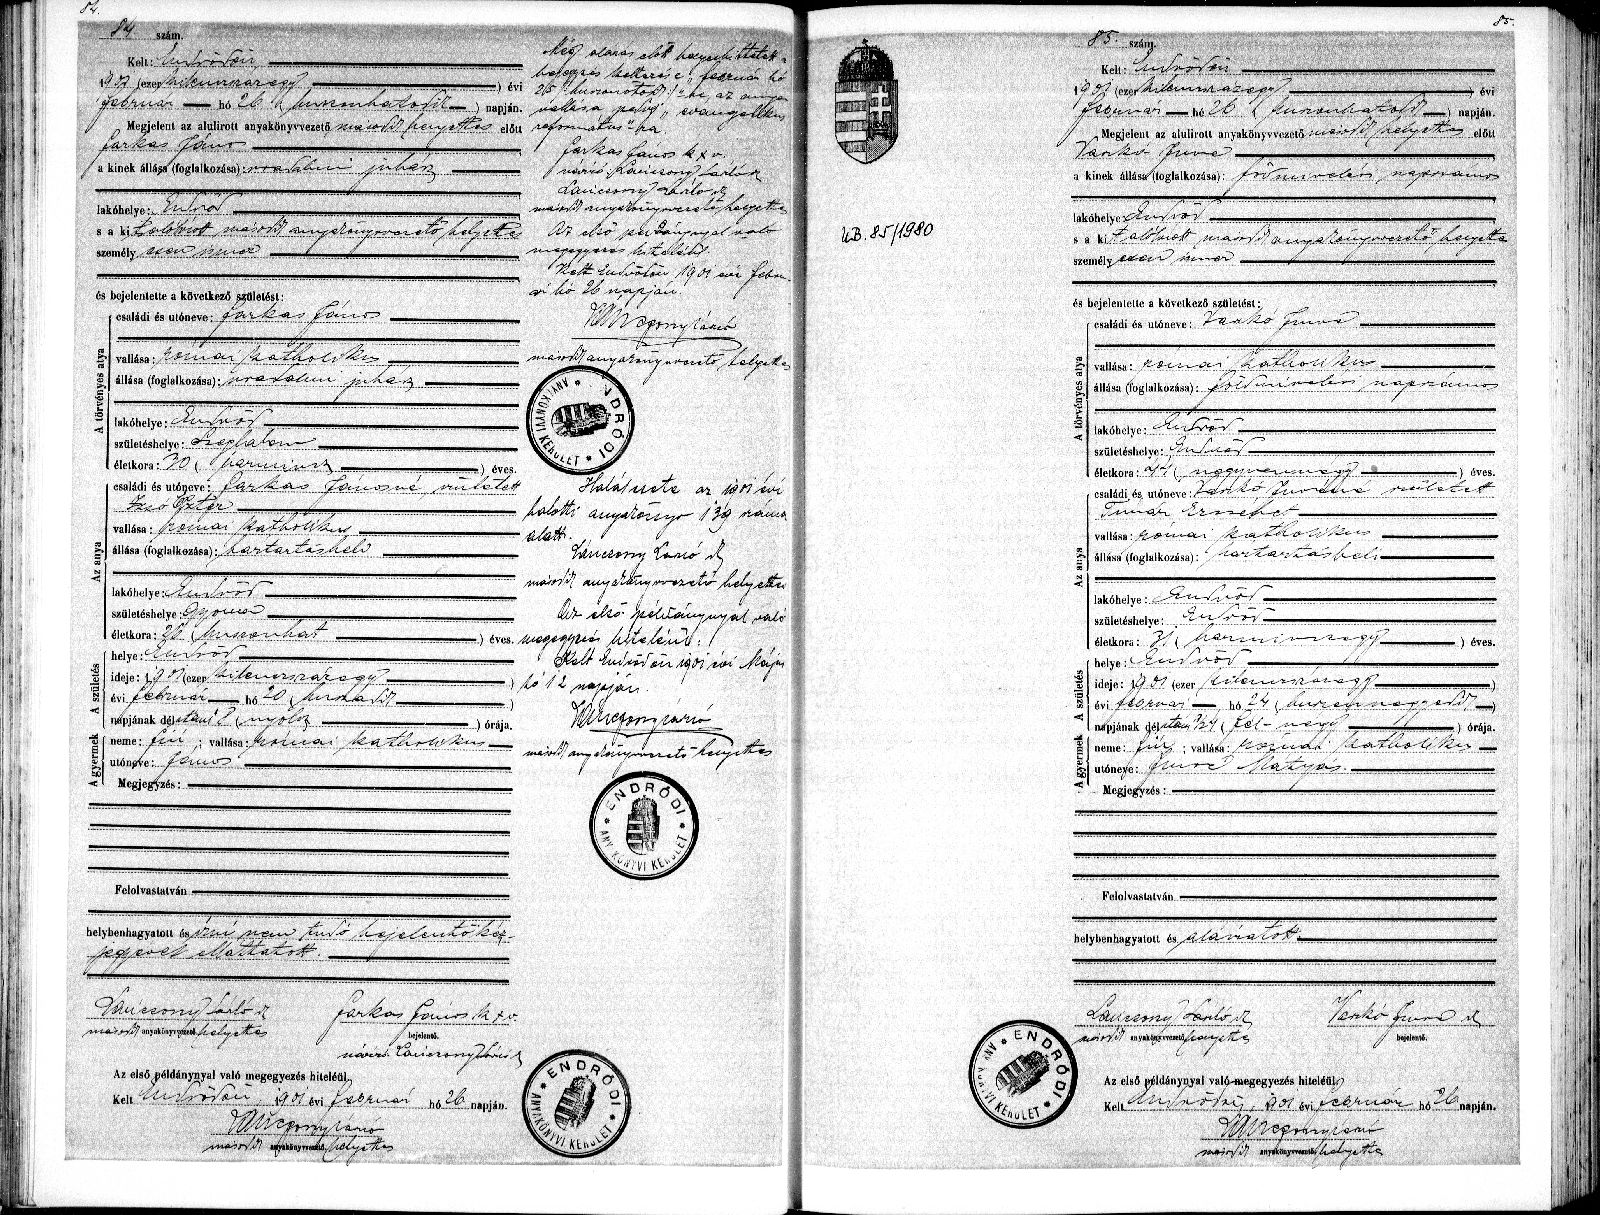 84.
84 szám.
Kelt: Endrődön,
1901 (ezer kilencszázegy) évi
február hó 26 (huszonhatodik) napján.
Megjelent az alulirott anyakönyvvezető másodi helyettes előtt
Farkas János
a kinek állása (foglalkozása): uradalmi juhász
lakóhelye: Endrőd
s a kit alólirott másodi anyakönyvvezető helyettes
személyesen ismer
és bejelentette a következő születést:
A törvényes atya
családi és utóneve: Farkas János
vallása: római katholikus
állása (foglalkozása): uradalmi juhász
lakóhelye: Endrőd
születéshelye: Szeghalom
életkora: 30 (harmincz) éves.
Az anya
családi és utóneve: Farkas Jánosné született
Eszter
vallása: római katholikus
állása (foglalkozása): háztartásbeli
lakóhelye: Endrőd
születéshelye: Gyoma
életkora: 26 (huszonhat) éves.
A születés
helye: Endrőd
ideje: 1901 (ezer kilencszázegy)
évi február hó 20 (huszadik)
napjának délutáni 8 (nyolcz) órája.
A gyermek
neme: fiú; vallása: római katholikus
utóneve: János
Megjegyzés:
Felolvastatván
helybenhagyatott és irni nem tudó bejelentő kéz-
jegyével elláttatott.
Láncsony László
másodi anyakönyvvezető helyettes
Farkas János k x v.
bejelentő.
névíró Láncsony László
Az első példánynyal való megegyezés hiteléül.
Kelt Endrődön 1901 évi február hó 26 napján.
Láncsony László
másodi anyakönyvvezető helyettes
Még aláírás előtt helyesbíttetett a
bejegyzés kelte " február hó
az anya
vallása pedig "evangelikus
református"-ra
Farkas János k x v.
névíró Láncsony László
Láncsony László
másodi anyakönyvvezető helyettes
Az első példánynyal való
megegyezés hiteléül.
Kelt Endrődön 1901 évi febru-
ár hó 26 napján.
Láncsony László
másodi anyakönyvvezető helyettes
ENDRŐDI ANYAKÖNYVI KERÜLET
Halálesete az 1901 évi
halotti anyakönyv 139 száma
alatt.
Láncsony László
másodi anyakönyvvezető helyettes
Az első példánynyal való
megegyezés hiteléül:
Kelt Endrődön 1901 évi Május
hó 12 napján.
Láncsony László
másodi anyakönyvvezető helyettes
ENDRŐDI ANYAKÖNYVI KERÜLET
ENDRŐDI ANYAKÖNYVI KERÜLET
U.B. 85/1980
85.
85. szám.
Kelt: Endrődön
1901 (ezer kilencszázegy) évi
február hó 26 (huszonhatodik) napján.
Megjelent az alulirott anyakönyvvezető másodi helyettes előtt
Varkó Imre
a kinek állása (foglalkozása): földmivelés napszámos
lakóhelye: Endrőd
s a kit alólirott másodi anyakönyvvezető helyettes
személyesen ismer
és bejelentette a következő születést:
A törvényes atya
családi és utóneve: Varkó Imre
vallása: római katholikus
állása (foglalkozása): földmivelés napszámos
lakóhelye: Endrőd
születéshelye: Endrőd
életkora: 44 (negyvennégy) éves.
Az anya
családi és utóneve: Varkó Imréné született
Timár Erzsébet
vallása: római katholikus
állása (foglalkozása): háztartásbeli
lakóhelye: Endrőd
születéshelye: Endrőd
életkora: 31 (harminczegy) éves.
A születés
helye: Endrőd
ideje: 1901 (ezer kilencszázegy)
évi február hó 24 (huszonnegyedik)
napjának délutáni 1/2 4 (fél négy) órája.
A gyermek
neme: fiú; vallása: római katholikus
utóneve: Imre Mátyás.
Megjegyzés:
Felolvastatván
helybenhagyatott és aláíratott.
Láncsony László
másodi anyakönyvvezető helyettes
Varkó Imre
bejelentő.
ENDRŐDI ANYAKÖNYVI KERÜLET
Az első példánynyal való megegyezés hiteléül.
Kelt Endrődön, 1901 évi február hó 26 napján.
Láncsony László
másodi anyakönyvvezető helyettes